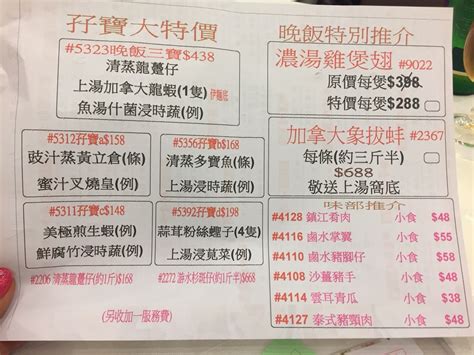 孖寶大特價
#5323晚飯三寶$438
清蒸龍躉仔
上湯加拿大龍蝦(1隻)伊麵底
魚湯什菌浸時蔬(例)
#5312孖寶a$158
豉汁蒸黃立倉(條)
蜜汁叉燒皇(例)
#5356孖寶b$168
清蒸多寶魚(條)
上湯浸時蔬(例)
#5311孖寶c$148
美極煎生蝦(例)
鮮腐竹浸時蔬(例)
#5392孖寶d$198
蒜茸粉絲蟶子(4隻)
上湯浸莧菜(例)
#2206 清蒸龍躉仔(約1斤)$168
#2272 游水杉斑仔(約1斤)$668
(另收加一服務費)
晚飯特別推介
濃湯雞煲翅 #9022
原價每煲$398
特價每煲$288
加拿大象拔蚌 #2367
每條(約三斤半)
$688
敬送上湯窩底
味部推介
#4128 鎮江肴肉 小食 $48
#4116 鹵水掌翼 小食 $55
#4110 鹵水豬腳仔 小食 $58
#4108 沙薑豬手 小食 $48
#4114 雲耳青瓜 小食 $38
#4127 泰式豬頸肉 小食 $48